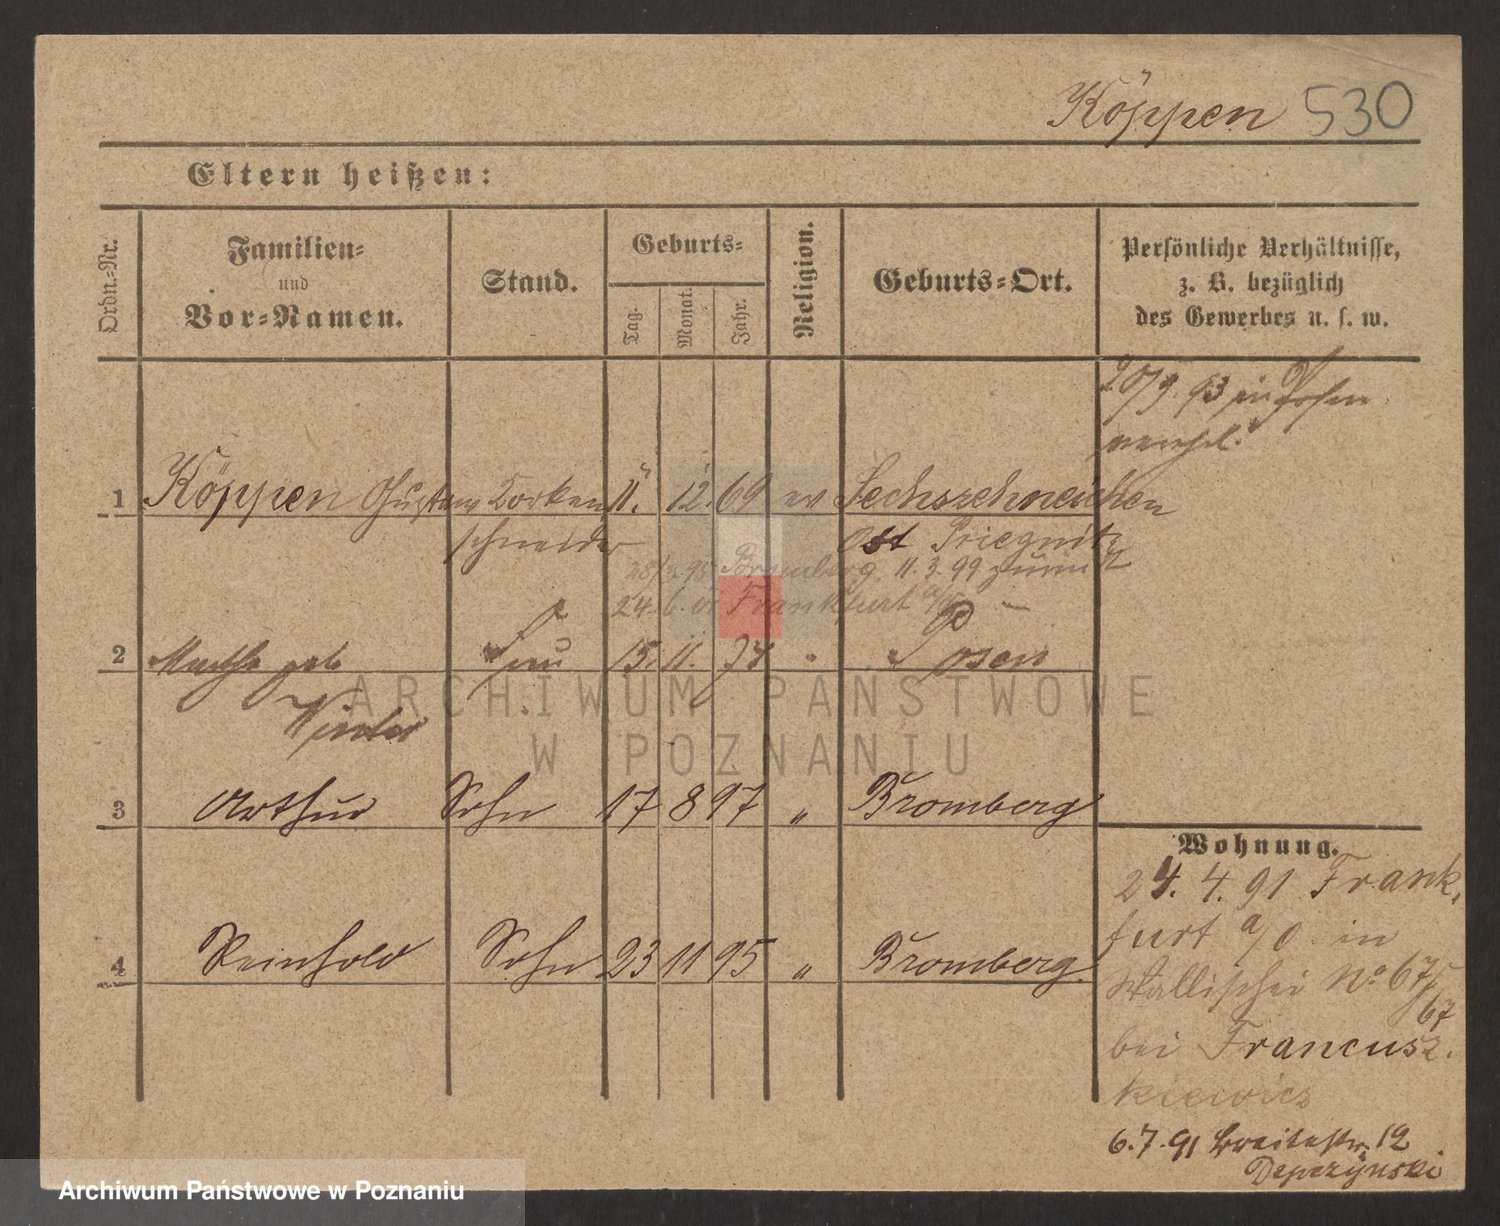 Köppen 530
Eltern heißen:
Ordn.-Nr.
Familien-
und
Vor-Namen.
Stand.
Geburts-
Tag.
Monat.
Jahr.
Religion.
Geburts-Ort.
Persönliche Verhältnisse,
z. B. bezüglich
des Gewerbes u. s. w.
20/9. 93 in Posen
1 Köppen Gustav Korken 11. 12. 69 ev Sechszehneichen
schneider Ost Priegnitz
Bromberg, 11. 3. 99 zurück
24. 6. 01 Frankfurt a/O
2 geb Frau 15. 11. 74 " Posen
3 Arthur Sohn 17 8 97 " Bromberg
4 Reinhold Sohn 23 11 95 " Bromberg
Wohnung.
24. 4. 91 Frank-
furt a/O in
Wallischei No 67
67
bei Francusz-
kiewicz
6. 7. 91 Breitestr. 12
Depczynski
ARCHIWUM PAŃSTWOWE
W POZNANIU
Archiwum Państwowe w Poznaniu